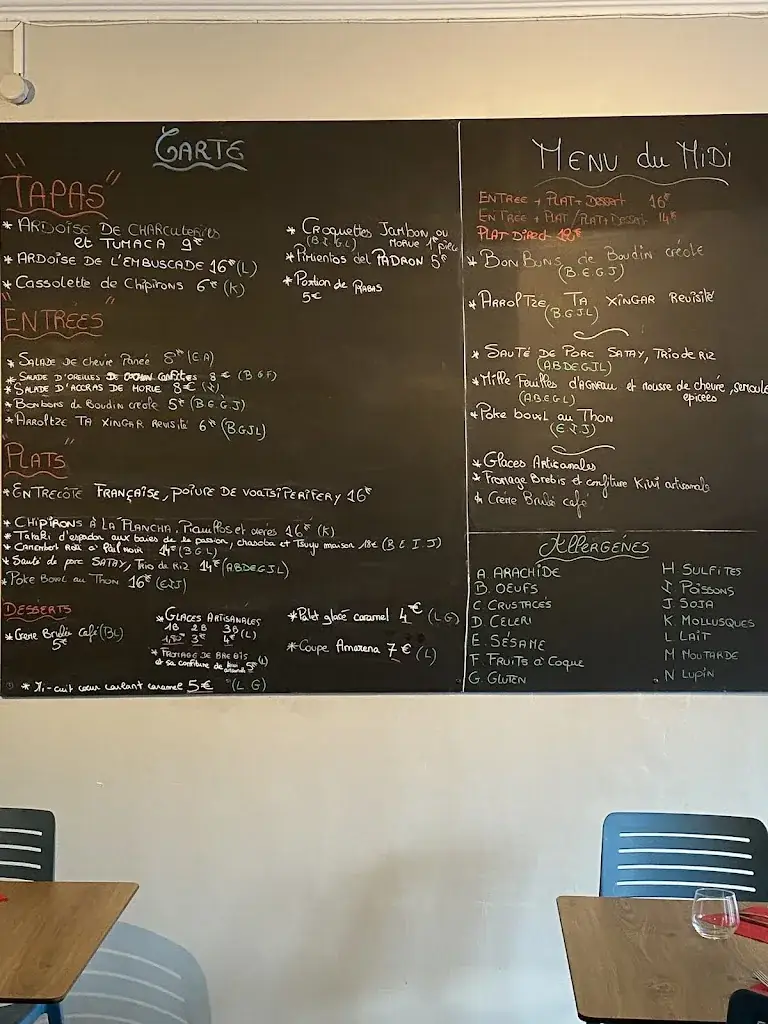 CARTE
"TAPAS"
* ARDOISE DE CHARCUTERIES
et TUMACA 9€
* ARDOISE DE L'EMBUSCADE 16€ (L)
* Cassolette de Chipirons 6€ (K)
* Croquettes Jambon ou
(B.I.G.L) MORUE 1€ pièce
* Pimientos del PADRON 5€
* Portion de RABAS
5€
"ENTRÉES"
* SALADE DE chèvre Panée 8€ (E.A)
* SALADE D'OREILLES DE confites 8€ (B.G.F)
* SALADE D'ACCRAS DE MORUE 8€
* Bonbons de Boudin créole 5€ (B.E.G.J)
* Arroltze TA XINGAR Revisité 6€ (BGJL)
"PLATS"
* ENTRECÔTE FRANÇAISE, POIVRE DE VOATSIPERIFERY 16€
* CHIPIRONS À LA PLANCHA, Piquillos et 16€ (K)
* Tataki d'espadon aux baies de la passion, chasoba et Tsuyu maison 18€ (B.E.I.J)
* CAMEMBERT Roti a 14€ (B G L)
* Sauté de porc SATAY, Trio de Riz 14€ (ABDEGJL)
* Poke Bowl au Thon 16€ (EIJ)
DESSERTS
* Crème Brulée Café (BL)
5€
* GLACES ARTISANALES
1B 2B 3B (L)
1,50€ 3€ 4€
* FROMAGE DE BREBIS
et sa confiture de kiwi 5€ (L)
* Palet glacé caramel 4€ (L G)
* Coupe Amarena 7€ (L)
* Mi-cuit cœur coulant caramel 5€ (L G)
MENU du MIDI
ENTREE + PLAT + Dessert 16€
ENTREE + PLAT / PLAT + Dessert 14€
PLAT Direct 12€
* BonBons de Boudin créole
(B.E.G.J)
* Arroltze TA XINGAR Revisité
(B.G.J.L)
* SAUTÉ DE PORC SATAY, Trio de Riz
(ABDEGJL)
* Mille Feuilles d'AGNEAU et mousse de chèvre, semoule
(A.B.E.G.L) epicées
* Poke bowl au Thon
(E I J)
* Glaces Artisanales
* Fromage Brebis et confiture Kiwi artisanale
* Crème Brulé café
Allergènes
A. ARACHIDE
B. OEUFS
C. CRUSTACÉS
D. CELERI
E. SÉSAME
F. FRUITS à Coque
G. GLUTEN
H SULFITES
I POISSONS
J. SOJA
K. MOLLUSQUES
L. LAIT
M MOUTARDE
N LUPIN